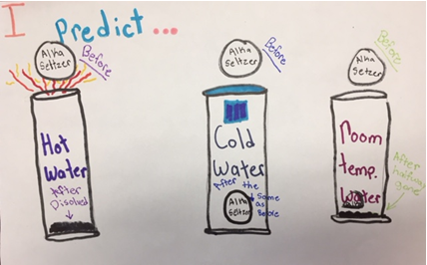 I Predict...
Alka
Seltzer
Before
Hot
Water
After
Disolved
Alka
Seltzer
Before
Cold
Water
After the
Same
as
Before
Alka
Seltzer
Alka
Seltzer
Before
Room
temp.
Water
After
halfway
gone